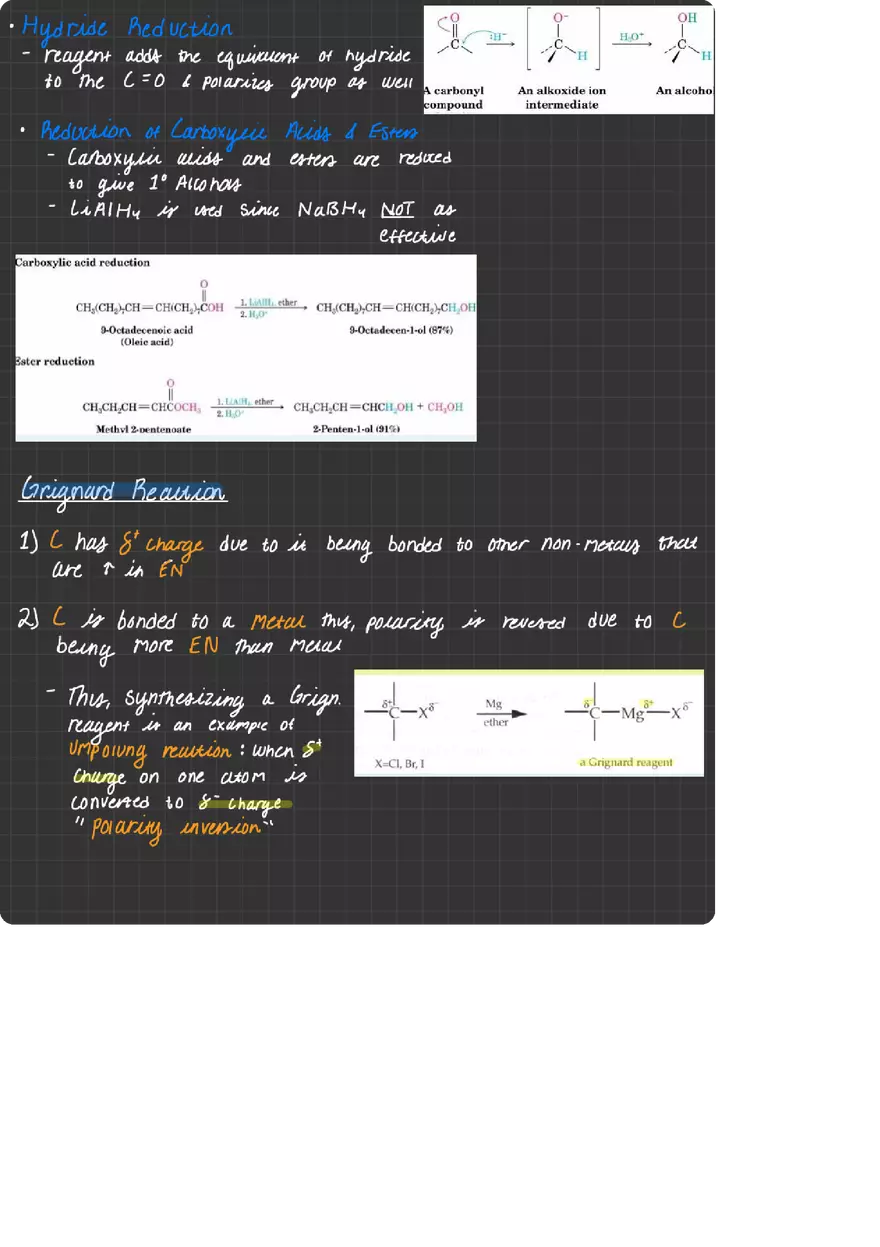 • Hydride Reduction
- reagent adds the equivalent of hydride
to the C=O & polarizes group as well
O
C
:H⁻
O⁻
C
H
H₃O⁺
OH
C
H
A carbonyl
compound
An alkoxide ion
intermediate
An alcoho
• Reduction of Carboxylic Acids & Esters
- Carboxylic acids and esters are reduced
to give 1° Alcohols
- LiAlH₄ is used since NaBH₄ NOT as
effective
Carboxylic acid reduction
O
CH₃(CH₂)₇CH=CH(CH₂)₇COH 1. LiAlH₄, ether CH₃(CH₂)₇CH=CH(CH₂)₇CH₂OH
2. H₃O⁺
9-Octadecenoic acid 9-Octadecen-1-ol (87%)
(Oleic acid)
Ester reduction
O
CH₃CH₂CH=CHCOCH₃ 1. LiAlH₄, ether CH₃CH₂CH=CHCH₂OH + CH₃OH
2. H₃O⁺
Methyl 2-pentenoate 2-Penten-1-ol (91%)
Grignard Reaction
1) C has δ⁺ charge due to it being bonded to other non-metals that
are ↑ in EN
2) C is bonded to a metal thus, polarity is reversed due to C
being more EN than metal
- Thus, synthesizing a Grign.
reagent is an example of
Umpolung reaction : when δ⁺
charge on one atom is
converted to δ⁻ charge
"polarity inversion"
δ⁺ C—X δ⁻
Mg
ether
δ⁻ C—Mg δ⁺—X δ⁻
X=Cl, Br, I
a Grignard reagent